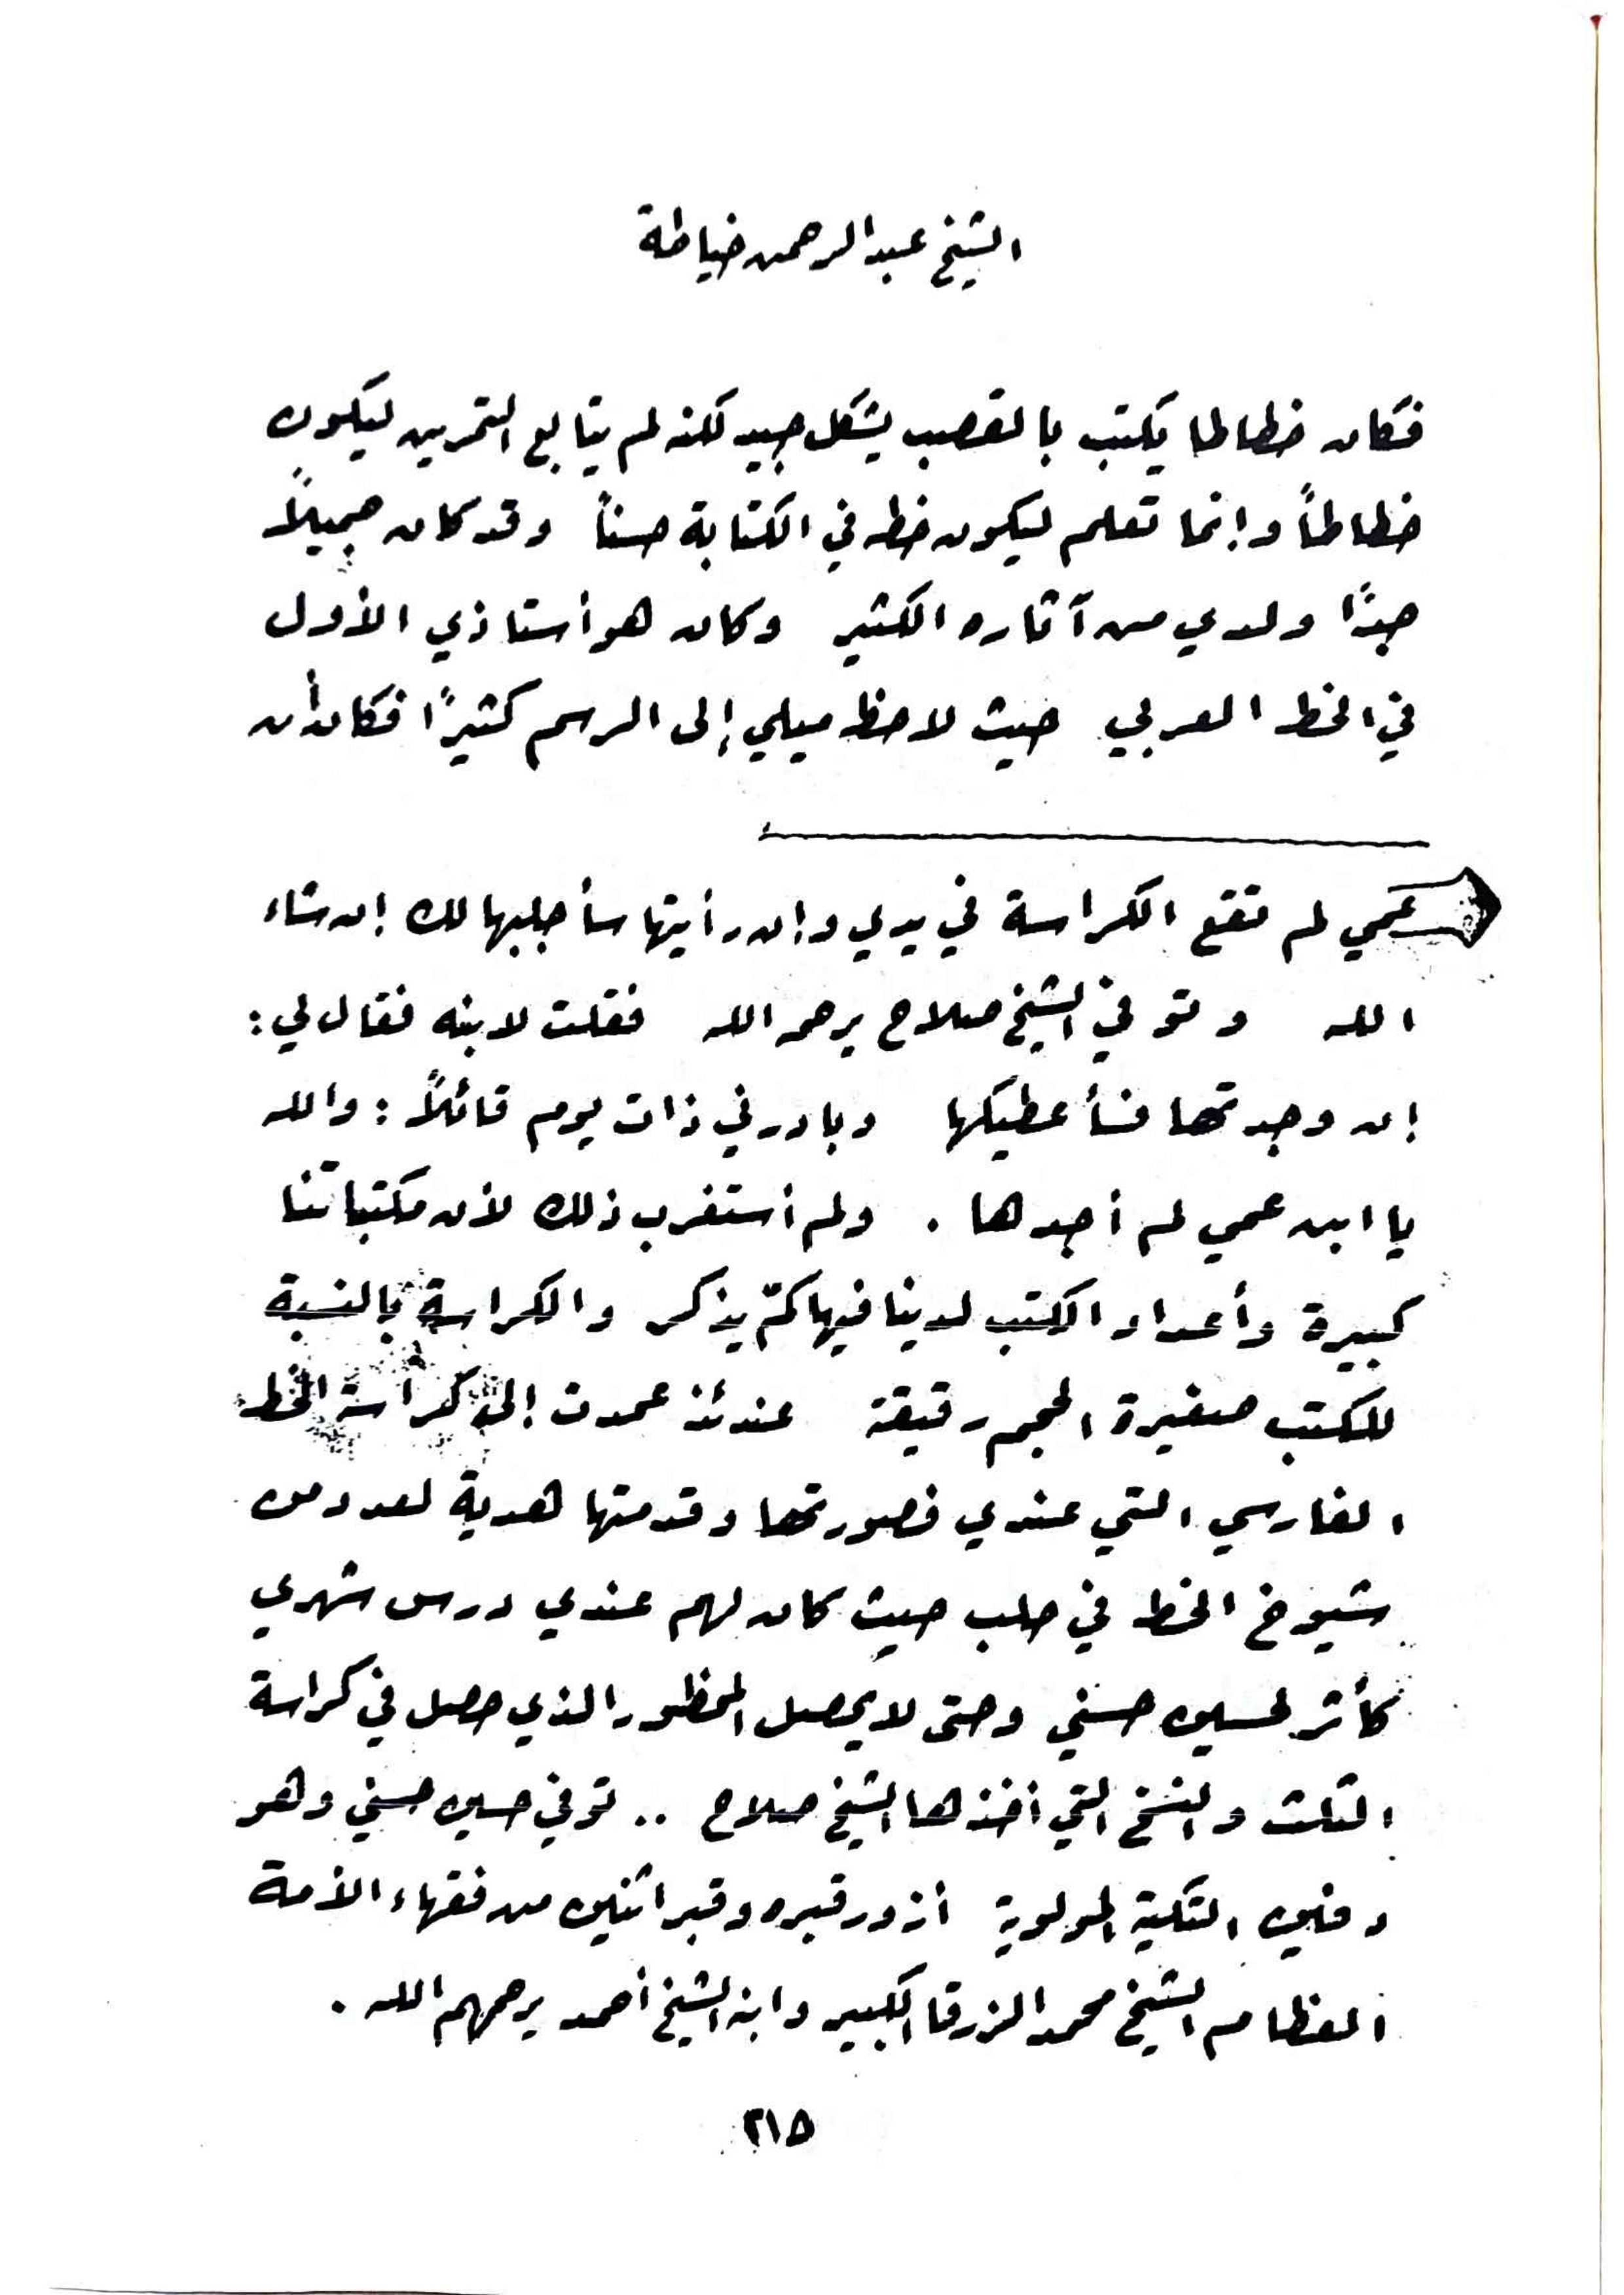 الشيخ عبدالرحمن خياطة
فكان خطاطا يكتب بالقصب بشكل جيد لكنه لم يتابع التمرين ليكون
خطاطاً وإنما تعلم ليكون خطه في الكتابة حسناً وقد كان جميلاً
جدًا ولدي من آثاره الكثير وكان هو أستاذي الأول
في الخط العربي حيث لاحظ ميلي إلى الرسم كثيرًا فكان أن
عمي لم تقع الكراسة في يدي وإن رأيتها سأجلبها لك إن شاء
الله وتوفي الشيخ صلاح يرحمه الله فقلت لابنه فقال لي:
إن وجدتها فسأعطيكها وبادرني ذات يوم قائلاً: والله
يا ابن عمي لم أجدها. ولم أستغرب ذلك لأن مكتباتنا
كبيرة وأعداد الكتب لدينا فيها كمّ يذكر والكراسة بالنسبة
للكتب صغيرة الحجم رقيقة عندئذ عمدت إلى كراسة الخط
الفارسي التي عندي فصورتها وقدمتها هدية لعدد من
شيوخ الخط في حلب حيث كان لهم عندي درس شهري
كأثر لحسين حسني وحتى لا يحصل المحظور الذي حصل في كراسة
الثلث والنسخ التي أخذها الشيخ صلاح .. توفي حسين حسني وهو
دفين التكية المولوية أزور قبره وقبر اثنين من فقهاء الأمة
العظام الشيخ محمد الزرقا الكبير وابنه الشيخ أحمد يرحمهم الله.
٢١٥